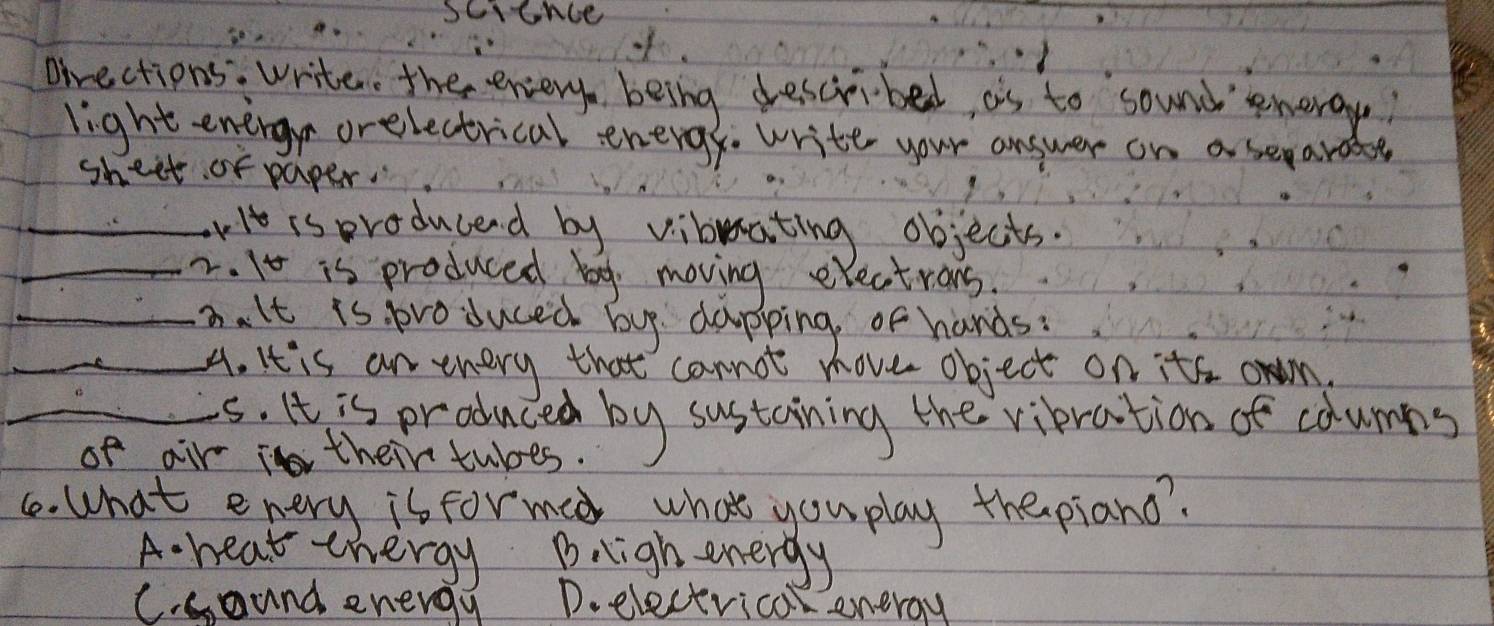 science
Directions: Write. the enery being described, as to sound energy,
light energy or electrical energy. Write your answer on a separate
sheet of paper.
1. It is produced by vibrating objects.
2. It is produced by moving electrons.
3. It is produced by clapping of hands:
4. It is an enery that cannot move object on its own.
5. It is produced by sustaining the vibration of columns
of air in their tubes.
6. What enery is formed what you play the piano?
A. heat energy B. ligh energy
C. sound energy D. electrical energy